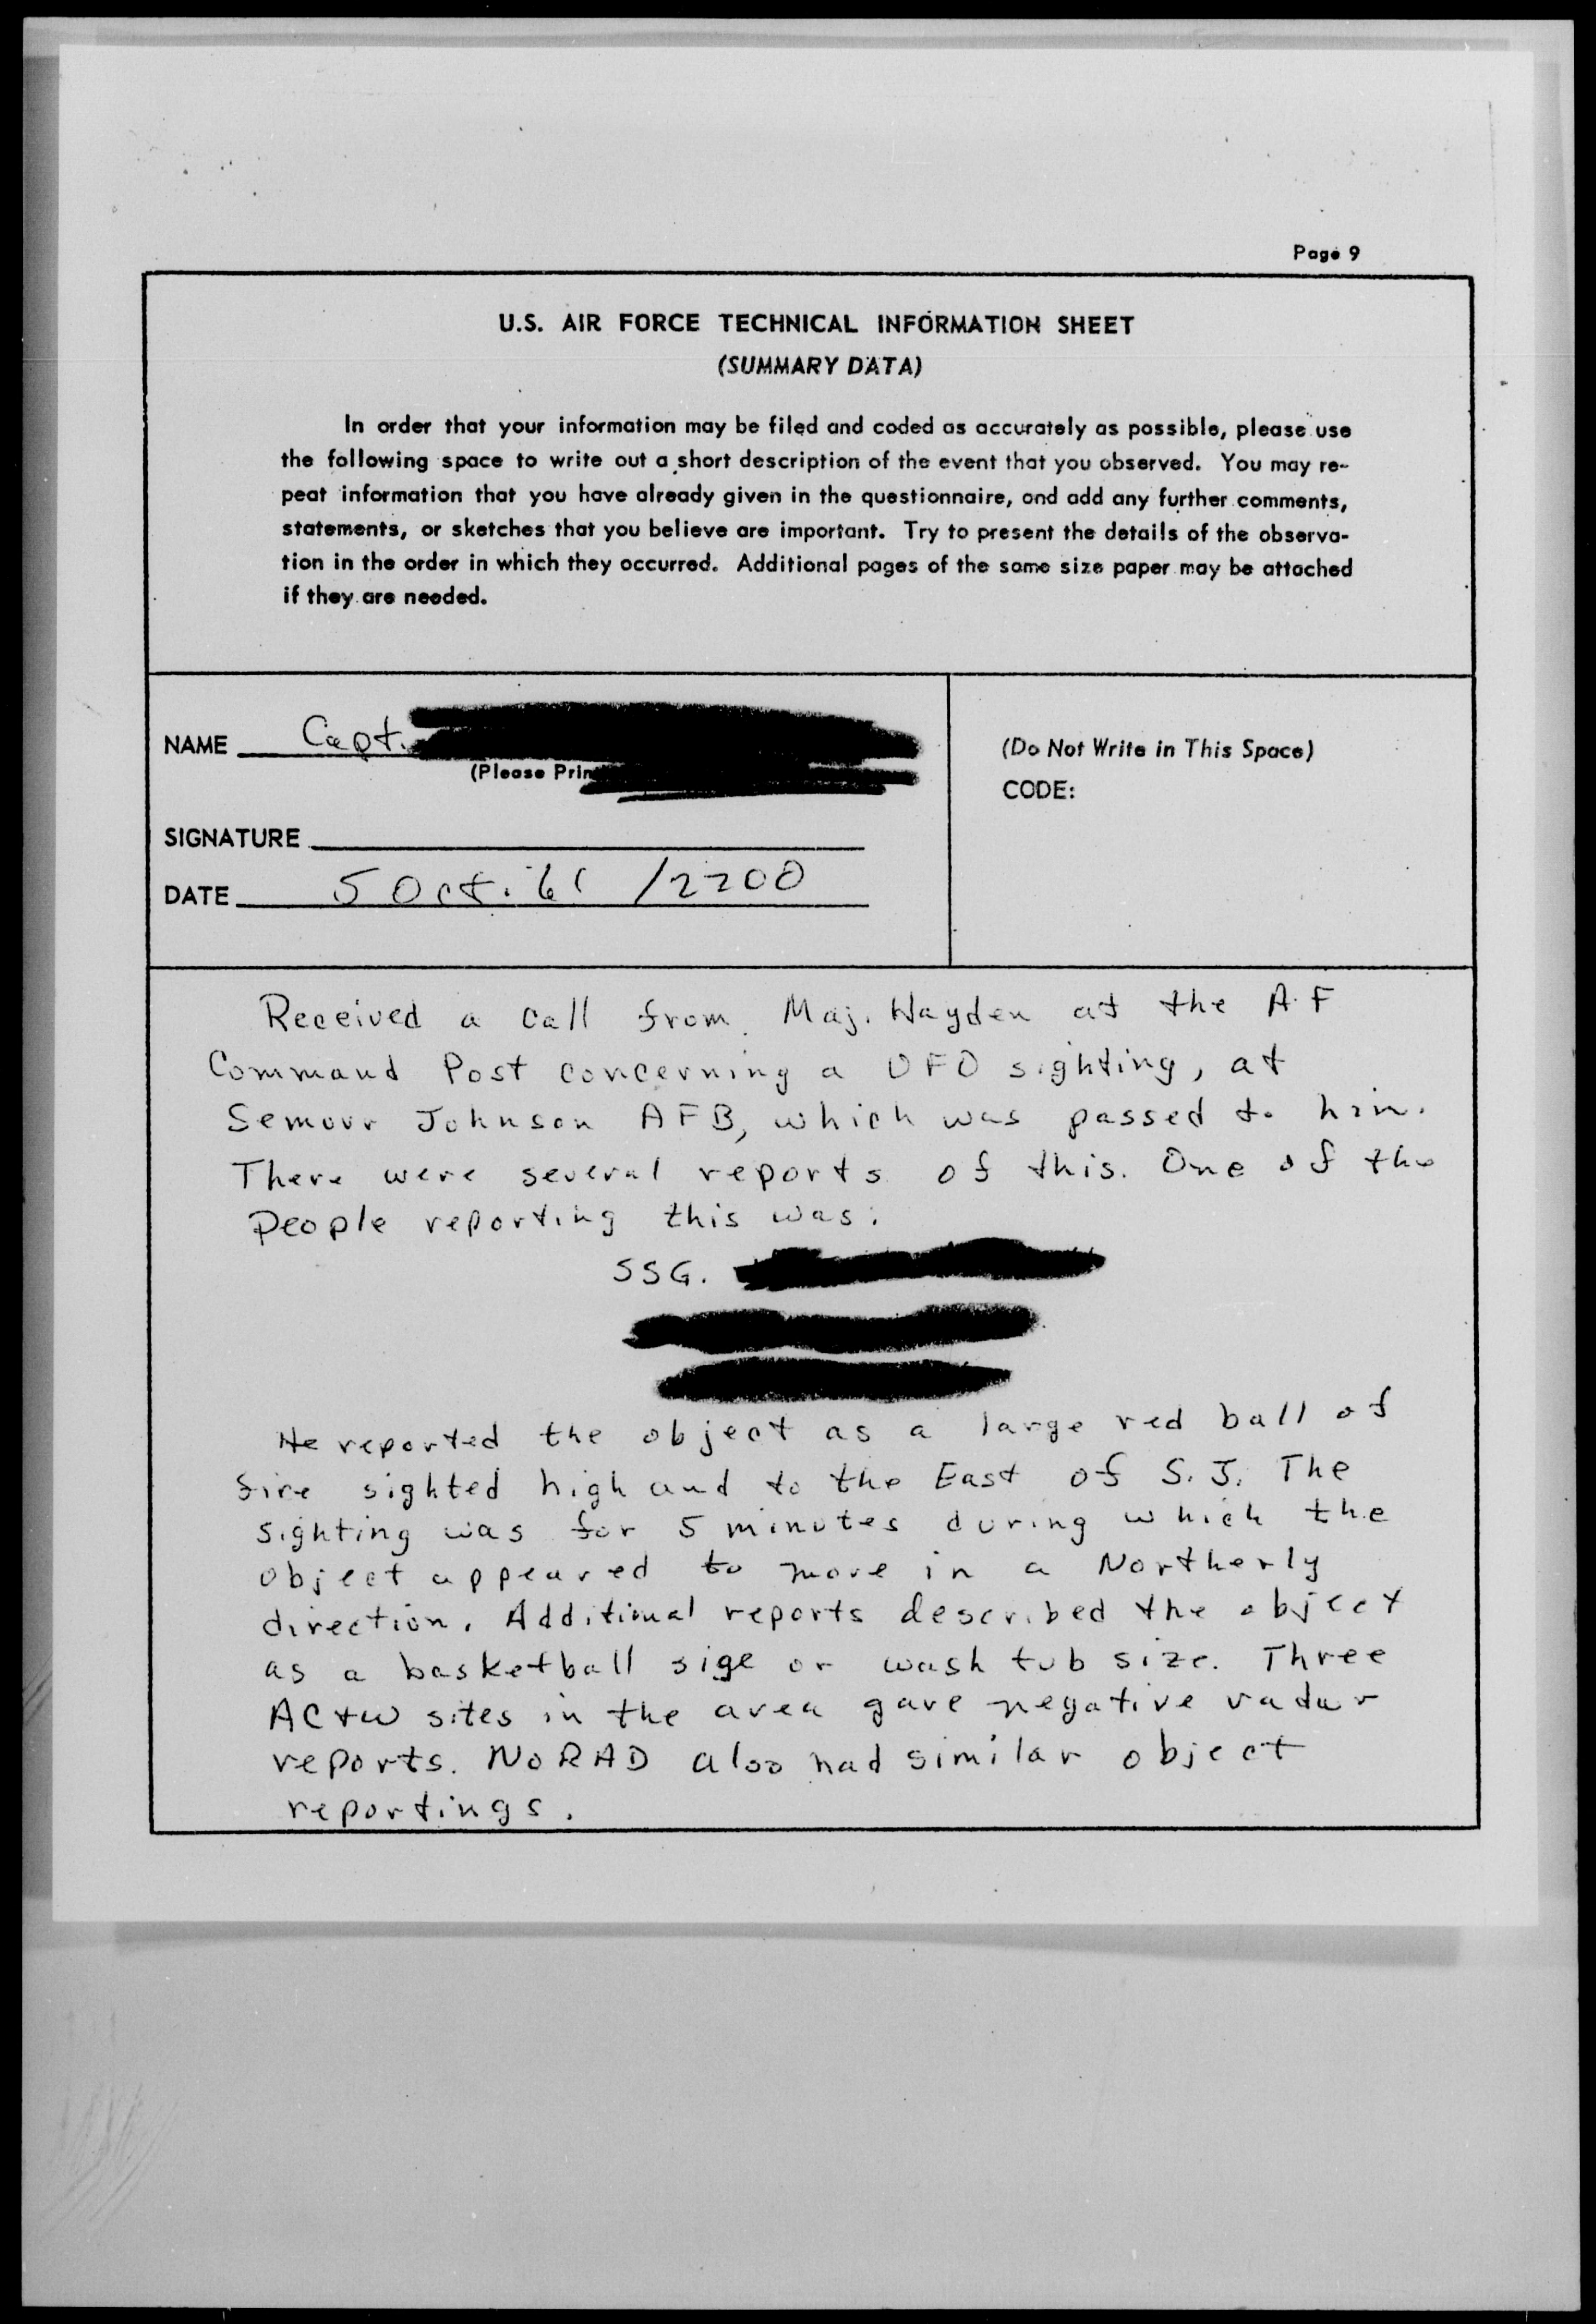 Page 9
U.S. AIR FORCE TECHNICAL INFORMATION SHEET
(SUMMARY DATA)
In order that your information may be filed and coded as accurately as possible, please use
the following space to write out a short description of the event that you observed. You may re-
peat information that you have already given in the questionnaire, and add any further comments,
statements, or sketches that you believe are important. Try to present the details of the observa-
tion in the order in which they occurred. Additional pages of the same size paper may be attached
if they are needed.
NAME Capt.
(Please Prin
(Do Not Write in This Space)
CODE:
SIGNATURE
DATE 5 Oct. 61 /2200
Received a call from Maj. Hayden at the A.F
Command Post concerning a UFO sighting, at
Semour Johnson AFB, which was passed to him.
There were several reports of this. One of the
people reporting this was:
SSG.
He reported the object as a large red ball of
fire sighted high and to the East of S.J. The
sighting was for 5 minutes during which the
object appeared to move in a Northerly
direction. Additional reports described the object
as a basketball size or wash tub size. Three
AC+W sites in the area gave negative radar
reports. NORAD also had similar object
reportings.